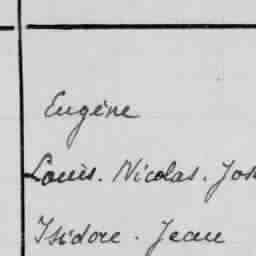 Eugène
Louis. Nicolas.
Isidore. Jean